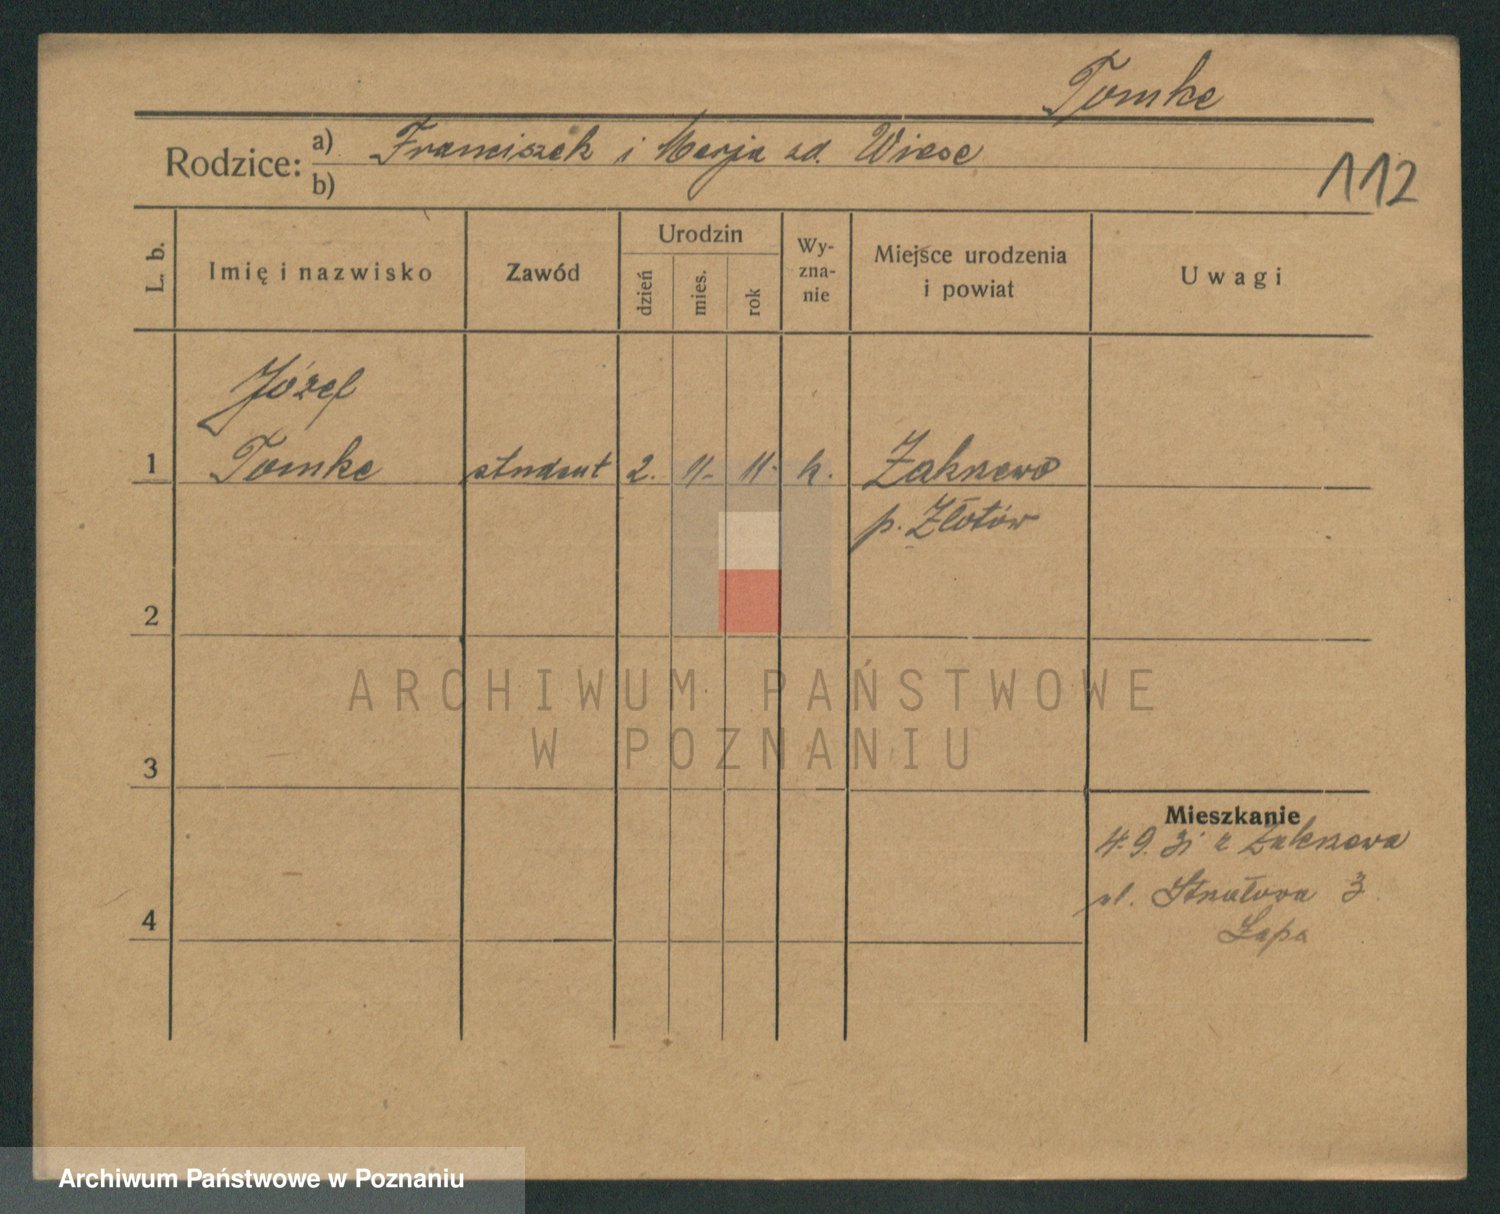 Tomke
Rodzice: a) Franciszek i Marja zd. Wiese
b)
112
L. b.
Imię i nazwisko
Zawód
Urodzin
dzień
mies.
rok
Wy-
zna-
nie
Miejsce urodzenia
i powiat
Uwagi
Józef
1 Tomke student 2. 11. 11. k. Zakrzewo
p. Złotów
2
3
4
Mieszkanie
4.9.31 z Zakrzewa
ul. 3
ARCHIWUM PAŃSTWOWE
W POZNANIU
Archiwum Państwowe w Poznaniu